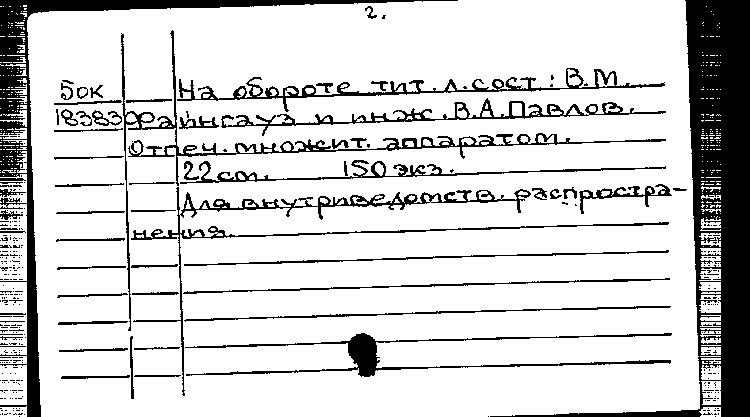 2.
Бок На обороте тит. л. сост: В.М.
18383 Файнгауз и инж. В.А. Павлов.
Отпеч. множит. аппаратом.
22 cm. 150 экз.
Для внутриведомств. распростра-
нения.